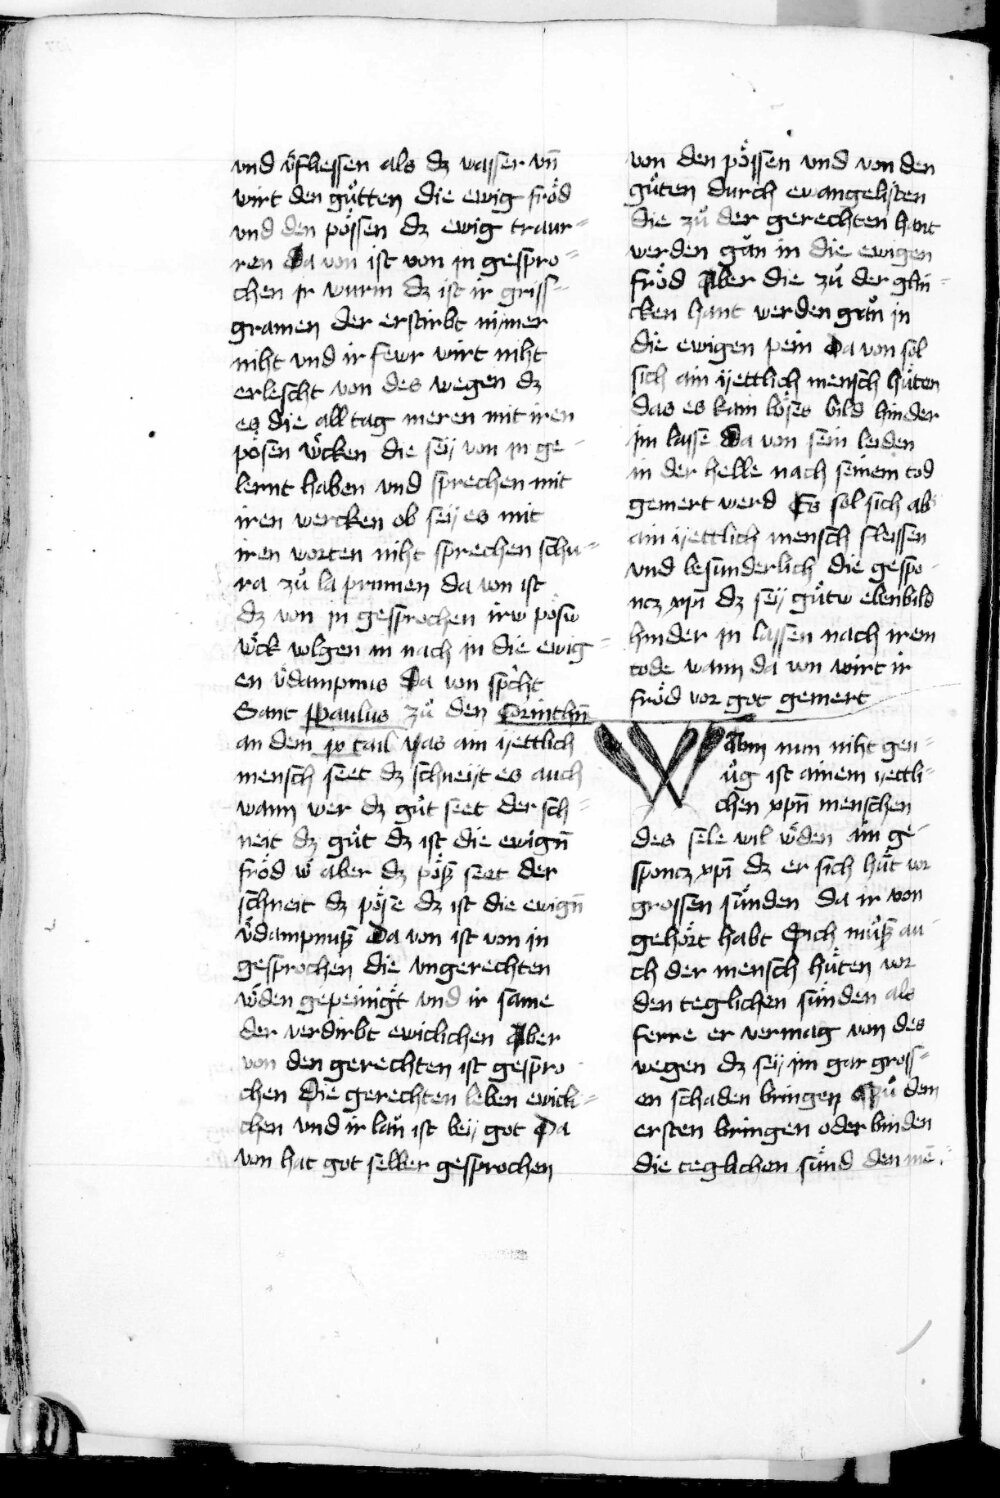 vnd v̈fliessen als dz wasser vn̄
wirt den gütten die ewig fröd
vnd den pössen dz ewig traur-
ren Da von ist von in gespro-
chen Ir wurm dz ist ir griss-
gramen der erstirbt nȳmer
niht vnd ir fewr wirt niht
erlescht von des wegen dz
es die all tag meren mit iren
pösen wͤcken die seÿ von in ge-
lernt haben vnd sprechen mit
iren wercken ob seÿ es mit
iren worten niht sprechen schu-
ra zů la prunnen da von ist
dz von in gesprochen irw pösw
wͤck volgen in nach in die ewig-
en v̈dampnus Da von sp̄cht
Sant Paulus zů den Corinthn̄
an dem tail Was ain ÿettlich
mensch seet dz schneÿt es auch
wann wer dz gůt seet der sch-
neit dz gůt dz ist die ewign̄
fröd w̄ aber dz pöß seet der
schneit dz pöse dz ist die ewign̄
v̈dampnuß Da von ist von in
gesprochen die vngerechten
wͤden gepeinigt vnd ir same
der verdirbt ewiclichen Aber
von den gerechten ist gespro
chen Die gerechten leben ewicli-
chen vnd ir lan ist beÿ got Da
von hat got selber gesprochen
von den pössen vnd von den
gůten durch ewangelisten
die zů der gerechten hant
werden gan in die ewigen
fröd Aber die zů der glin-
cken hant werden gan in
die ewigen pein Da von sol
sich ain ÿettlich mensch hüten
das es kain böses bild hinder
im lasse Da von sein leiden
in der helle nach seinem tod
gemert werd Es sol sich als
ain ÿettlich mensch fleissen
vnd besunderlich die gespo-
ncz xp̄i dz seÿ gůtw ebenbild
hinder in lassen nach irem
tode wann da von wirt ir
fröd vor got gemert
Wann nun niht gen-
ůg ist ainem ÿettli-
chen xp̄n menschen
des sele wil wͤden ain ge-
sponcz xp̄i dz er sich hüt vor
grossen sünden da ir von
gehört habt Sich můß au
ch der mensch hüten vor
den teglichen sünden als
ferre er vermag von des
wegen dz seÿ im gar gross-
en schaden bringen Zů dem
ersten bringen oder binden
die teglichen sünd den mē-